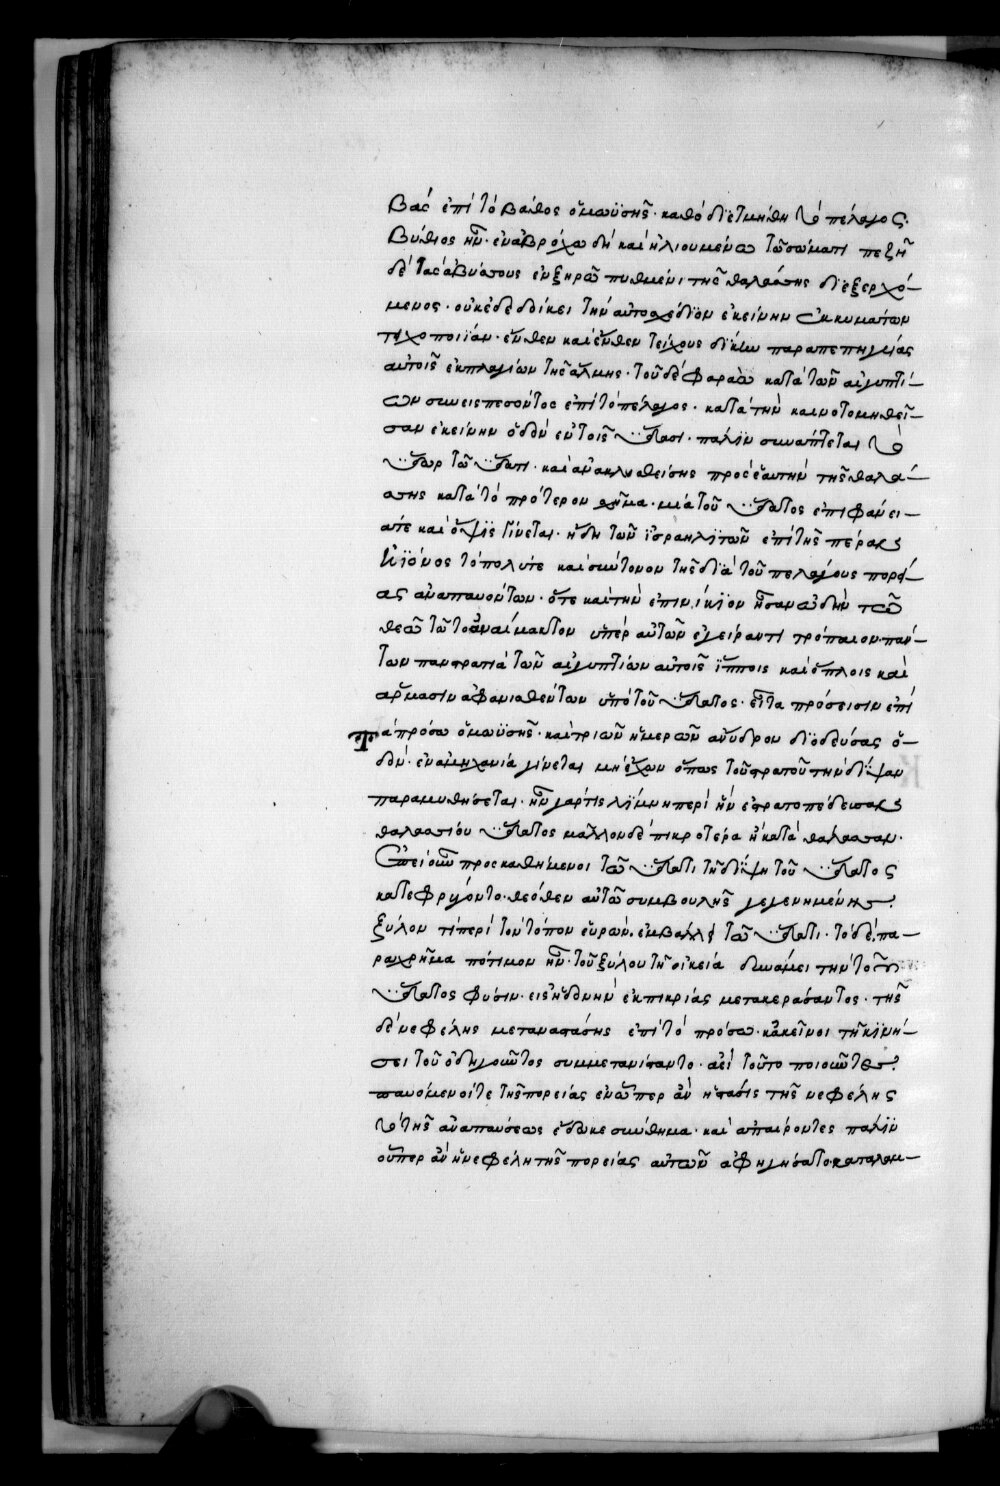 βὰς ἐπὶ τὸ βάθος ὁ μωϋσῆς· καθὸ διετμήθη τὸ πέλαγος.
βύθιος ἦν· ἐν ἀβρόχω δὲ καὶ ἡλιουμένω τῶ σώματι πεζῆ
δὲ τὰς ἀβύσσους ἐν ξηρῶ πυθμένι τῆς θαλάσσης διεξερχό-
μενος· οὐκ ἐδεδοίκει τὴν αὐτοσχέδιον ἐκείνην ἐκ κυμάτων
τειχοποιΐαν· ἔνθεν καὶ ἔνθεν τείχους δίκην παραπεπηγυίας
αὐτοῖς ἐκ πλαγίων τῆς ἅλμης· τοῦ δὲ φαραὼ κατὰ τῶν αἰγυπτί-
ων συνεισπεσόντος ἐπὶ τὸ πέλαγος· κατὰ τὴν καινοτομηθεῖ-
σαν ἐκείνην ὁδὸν ἐν τοῖς ὕδασι· πάλιν συνάπτεται τὸ
ὕδωρ τῶ ὕδατι· καὶ ἀνακλυσθείσης πρὸς ἑαυτὴν τῆς θαλά-
σσης κατὰ τὸ πρότερον σχῆμα· μία τοῦ ὕδατος ἐπιφάνει-
ά τε καὶ ὄψις γίνεται· ἤδη τῶν ἰσραηλιτῶν ἐπὶ τῆς πέρας
ἠϊόνος τὸ πολύ τε καὶ σύντονον τῆς διὰ τοῦ πελάγους πορεί-
ας ἀναπαυόντων· ὅτε καὶ τὴν ἐπινίκιον ἦσαν ὠδὴν τῶ
θεῶ τῶ τὸ ἀναίμακτον ὑπὲρ αὐτῶν ἐγείραντι τρόπαιον· πάν-
των πανστρατιᾶ τῶν αἰγυπτίων αὐτοῖς ἵπποις καὶ ὅπλοις καὶ
ἅρμασιν ἀφανισθέντων ὑπὸ τοῦ ὕδατος· εἶτα πρόσεισιν ἐπὶ
τὰ πρόσω ὁ μωϋσῆς· καὶ τριῶν ἡμερῶν ἄνυδρον διοδεύσας ὁ-
δόν· ἐν ἀμηχανία γίνεται μὴ ἔχων ὅπως τοῦ στρατοῦ τὴν δίψαν
παραμυθήσεται· ἦν γάρ τις λίμνη περὶ ἣν ἐστρατοπέδευσαν
θαλασσίου ὕδατος μᾶλλον δὲ πικροτέρα ἢ κατὰ θάλασσαν·
ἐπεὶ οὖν προσκαθήμενοι τῶ ὕδατι τῆ δίψη τοῦ ὕδατος
κατεφρύγοντο· θεόθεν αὐτῶ συμβουλῆς γεγενημένης
ξύλον τι περὶ τὸν τόπον εὑρών· ἐμβάλλει τῶ ὕδατι· τὸ δὲ πα-
ραχρῆμα πότιμον ἦν· τοῦ ξύλου τῆ οἰκεία δυνάμει τὴν τοῦ
ὕδατος φύσιν· εἰς ἡδονὴν ἐκ πικρίας μετακεράσαντος· τῆς
δὲ νεφέλης μεταναστάσης ἐπὶ τὸ πρόσω· κἀκεῖνοι τῆ κινή-
σει τοῦ ὁδηγοῦντος συμμετανίσταντο· ἀεὶ τοῦτο ποιοῦντες·
παυόμενοί τε τῆς πορείας ἐν ὧπερ ἂν ἡ στάσις τῆς νεφέλης
τὸ τῆς ἀναπαύσεως ἔδωκε σύνθημα· καὶ ἀπαίροντες πάλιν
οὗπερ ἂν ἡ νεφέλη τῆς πορείας αὐτῶν ἀφηγήσατο· καταλαμ-